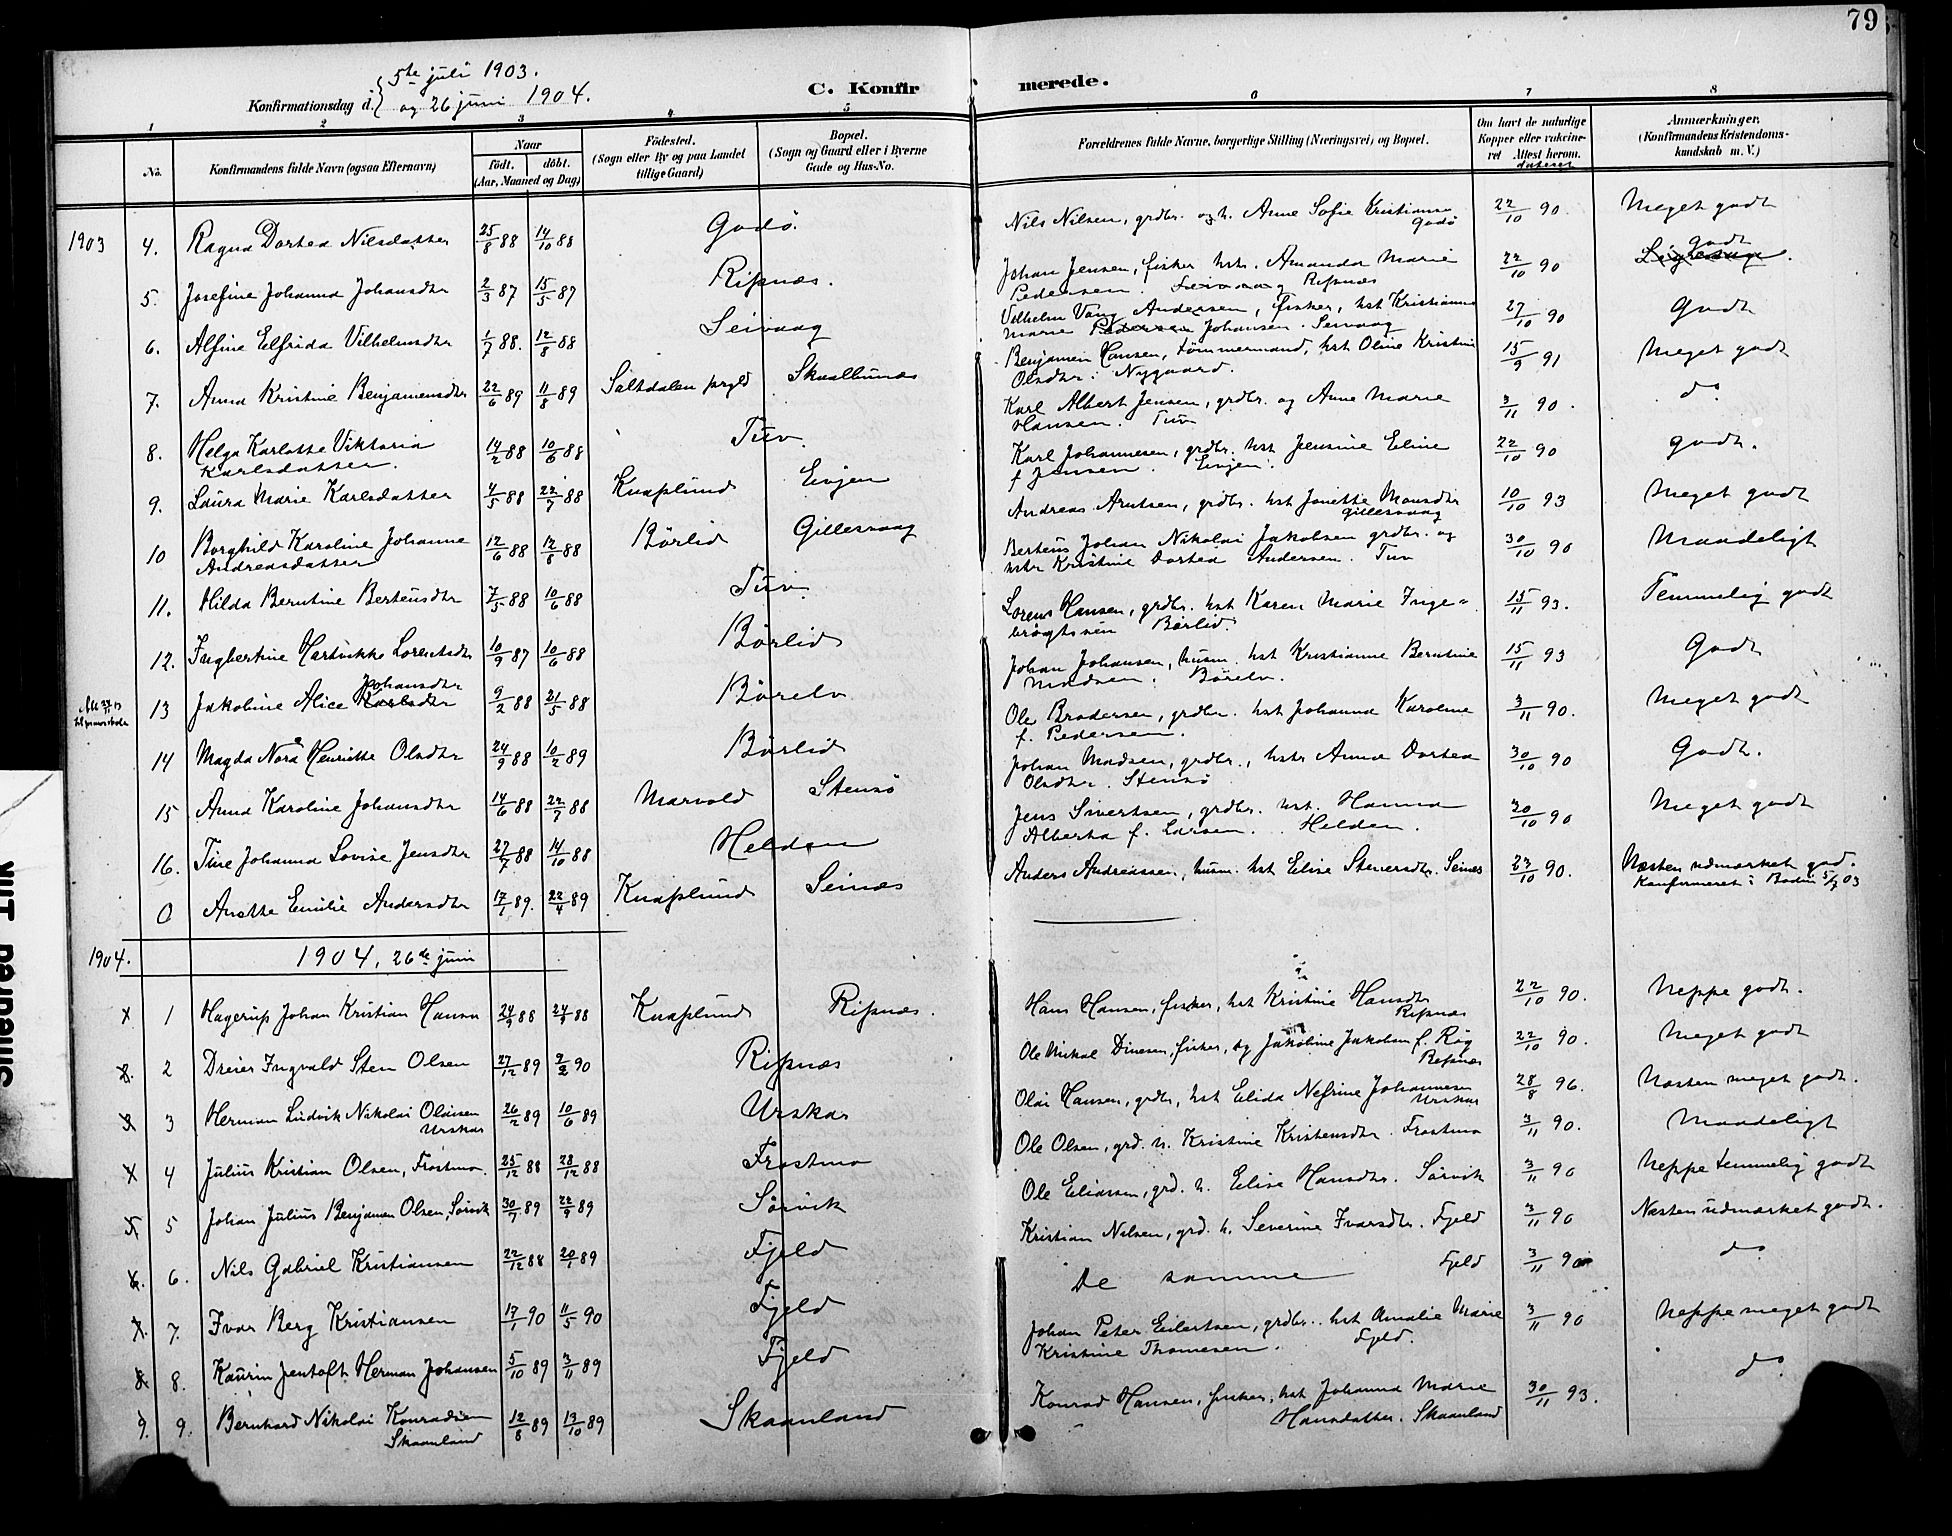 79
5te juli 1903.
Konfirmationsdag d. og 26 juni 1904.
C. Konfirmerede.
1 2 3 4 5 6 7 8
No.
Konfirmandens fulde Navn (ogsaa Efternavn)
Naar
født. døbt.
(Aar, Maaned og Dag)
Fødested.
(Sogn eller By og paa Landet
tillige Gaard)
Bopæl.
(Sogn og Gaard eller i Byerne
Gade og Hus-No.
Forældrenes fulde Navne, borgerlige Stilling (Næringsvei) og Bopæl.
Om havt de naturlige
Kopper eller vakcine-
ret Attest herom.
dateret
Anmærkninger.
(Konfirmandens Kristendoms-
kundskab m. V.)
1903 4. Ragna Dortea Nilsdatter 25/8 88 14/10 88 Godø. Nils Nilsen, grdbr. og h. Anne Sofie Kristiansen Godø 22/10 90. Meget godt
5. Josefine Johanna Johansdtr 2/3 87 15/5 87 Ripnæs. Johan Jensen, fisker hstr. Amanda Marie
Pedersen. Ripnæs 22/10 90 godt
6. Alfine Elfrida Vilhelmsdtr 1/7 88. 12/8 88 Seivaag Vilhelm Vang Andersen, fisker, hst Kristianna
Marie Pedersen Johansen. Seivaag 27/10 90 Godt
7. Anna Kristine Benjaminsdtr 22/6 89 11/8 89 Saltdalen prgld Skaalbunes Benjamin Hansen, Tømmermand, hst Oline Kristine
Olsdtr. Nygaard. 15/9 91 Meget godt
8. Helga Karlotte Viktoria
Karlsdatter. 14/2 88 10/6 88 Tuv. Karl Albert Jensen, grdbr. og Anne Marie
Hansen. Tuv 3/11 90. do
9. Laura Marie Karlsdatter 4/5 88 22/7 88 Knaplund Evjen Karl Johannesen, grdbr. hst Jensine Eline
f Jensen. Evjen. 22/10 90 godt.
10 Borghild Karoline Johanne
Andreasdatter 12/6 88 12/8 88 Børlid Gillesvaag Andreas Arntsen, grdbr. hst Jonette Monsdtr
Gillesvaag 10/10 93 Meget godt
11. Hilda Berntine Berteusdtr 7/5 88 10/6 88 Tuv. Berteus Johan Nikolai Jakobsen grdbr. og
hstr Kristine Dortea Andersen. Tuv 30/10 90 Maadeligt
12. Ingbertine Hartvikke Lorentsdtr 10/9 87 10/6 88 Børlid Lorens Hansen, grdbr. hst Karen Marie Inge-
brigtsen Børlid. 15/11 93. Temmelig godt
13 Jakobine Alice Johansdtr 9/2 88 21/5 88 Børelv Johan Johansen, husm. hst Kristianne Berntine
Madsen. Børelv. 15/11 93 Godt
14 Magda Nora Henriette Olsdtr 24/9 88 10/2 89 Børlid Ole Brodersen, grdbr. hst Johanna Karoline
f. Pedersen. 3/11 90. Meget godt
15 Anna Karoline Johansdtr 14/6 88 22/7 88 Marvold Stensø Johan Madsen, grdbr., hstr Anna Dortea
Olsdtr. Stensø 30/10 90 Godt.
16. Tine Johanna Lovise Jensdtr 27/7 88 14/10 88 Helden Jens Sivertsen, grdbr. hst. Hanna
Alberta f. Larsen. Helden. 30/10 90 Meget godt
0 Anette Emilie Andersdtr 17/1 89. 22/4 89 Knaplund Seinæs Anders Andreassen, husm. hst Elise Steversdtr. Seines 23/10 90. Næsten udmærket god.
Konfirmeret i Bodin 5/7 03
1904. 1904, 26de juni
1 Hagerup Johan Kristian Hansen 24/9 88 24/9 88 Knaplund Ripnæs. Hans Hansen, fisker, hst Kristine Hansdtr
Ripnæs 22/10 90. Neppe godt.
2 Dreier Ingvald Sten Olsen 27/12 89 2/2 90 Ripnæs Ole Mikal Dinesen, fisker, og Jakobine Jakobsen f. Røg
Ripnæs 22/10 90. Meget godt
3 Herman Ludvik Nikolai Olaisen
Urskar 26/2 89 10/6 89 Urskar Olai Hansen, grdbr, hst Elida Nefrine Johannesen
Urskar 28/8 96. Næsten meget godt.
4 Julius Kristian Olsen, Frostmo. 25/12 88 28/12 88 Frostmo Ole Olsen, grd. h. Kristine Kristensdtr. Frostmo 3/11 90. Maadeligt
5 Johan Julius Benjamin Olsen, Sørvik 30/7 89 22/9 89 Sørvik Ole Eliassen, grd. h. Elise Hansdtr. Sørvik 3/11 90 Neppe temmelig godt
6. Nils Gabriel Kristiansen 22/12 88 20/1 89 Fjeld Kristian Nilsen, grd. h. Severine Ivarsdtr. Fjeld 3/11 90 Næsten udmærket godt.
7. Ivar Berg Kristiansen 17/1 90 11/5 90 Fjeld De samme Fjeld 3/11 90 do
8. Kaurin Jentoft Herman Johansen 5/10 89 3/11 89 Fjeld Johan Peter Eilertsen, grdbr. hst Amalie Marie
Kristine Thomesen. Fjeld. 3/11 90 Neppe meget godt
9. 9. Bernhard Nikolai Konradsen
Skaanland 12/8 89 13/10 89 Skaanland Konrad Hansen, fisker, hst Johanna Marie
Hansdatter. Skaanland 30/11 93. do